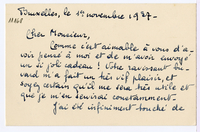 Bruxelles, le 1er novembre 1927.
Cher Monsieur,
Comme c'est aimable à vous d'a-
voir pensé à moi et de m'avoir envoyé
un si joli cadeau! Votre ravissant bu-
vard m'a fait un très vif plaisir, et
soyez certain qu'il me sera très utile et
que je m'en servirai constamment.
J'ai été infiniment touché de